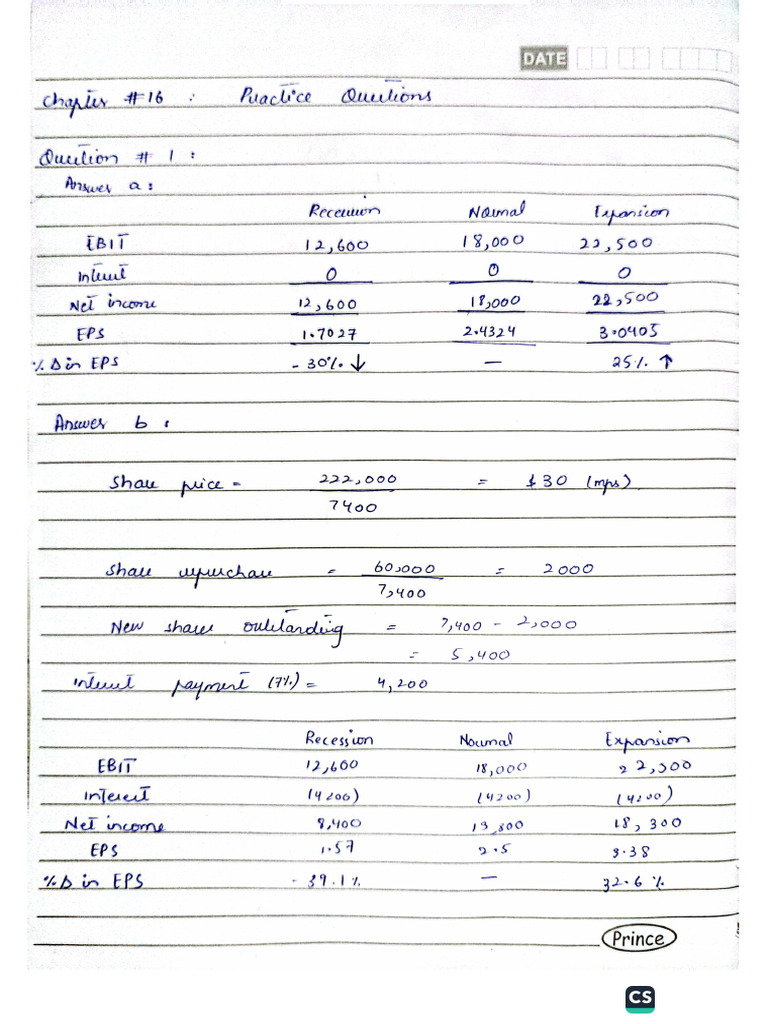 DATE
Chapter #16 : Practice Questions
Question # 1 :
Answer a :
Recession Normal Expansion
EBIT 12,600 18,000 22,500
Interest 0 0 0
Net income 12,600 18,000 22,500
EPS 1.7027 2.4324 3.0405
% Δ in EPS - 30% ↓ — 25% ↑
Answer b :
Share price = 222,000 = $30 (mps)
7400
Share repurchase = 60,000 = 2000
7,400
New shares outstanding = 7,400 - 2,000
= 5,400
Interest payment (7%) = 4,200
Recession Normal Expansion
EBIT 12,600 18,000 22,500
Interest (4200) (4200) (4200)
Net income 8,400 13,800 18,300
EPS 1.57 2.5 3.38
% Δ in EPS - 39.1% — 32.6%
Prince
CS